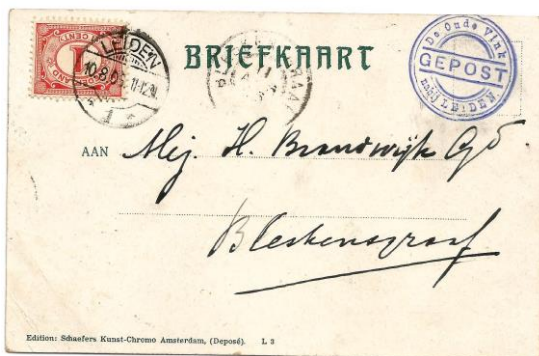 BRIEFKAART
LEIDEN
10.8.0
11-12.N
1
1
CENT
De Oude Vink
GEPOST
nabij LEIDEN
AAN Mej. H. Brandwijk Gzd
Bleskensgraaf
Edition: Schaefers Kunst-Chromo Amsterdam, (Deposé). L 3